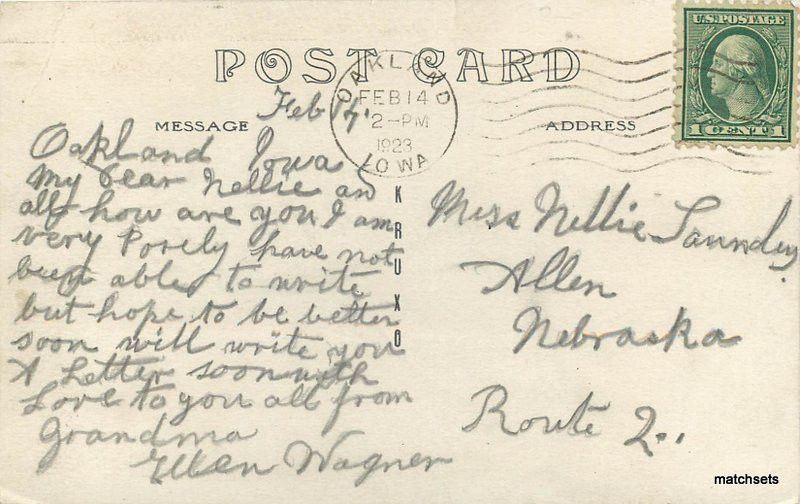 POST CARD
U.S. POSTAGE
1 CENT 1
OAKLAND
FEB 14
2-PM
1923
IOWA
MESSAGE
ADDRESS
Feb 14
Oakland Iowa
My Dear Nellie an
all how are you I am
very Porely have not
been able to write
but hope to be better
soon will write you
A Letter soon with
Love to you all from
Grandma
Ellen Wagner
KRUXO
Miss Nellie Saunders
Allen
Nebraska
Route 2..
matchsets